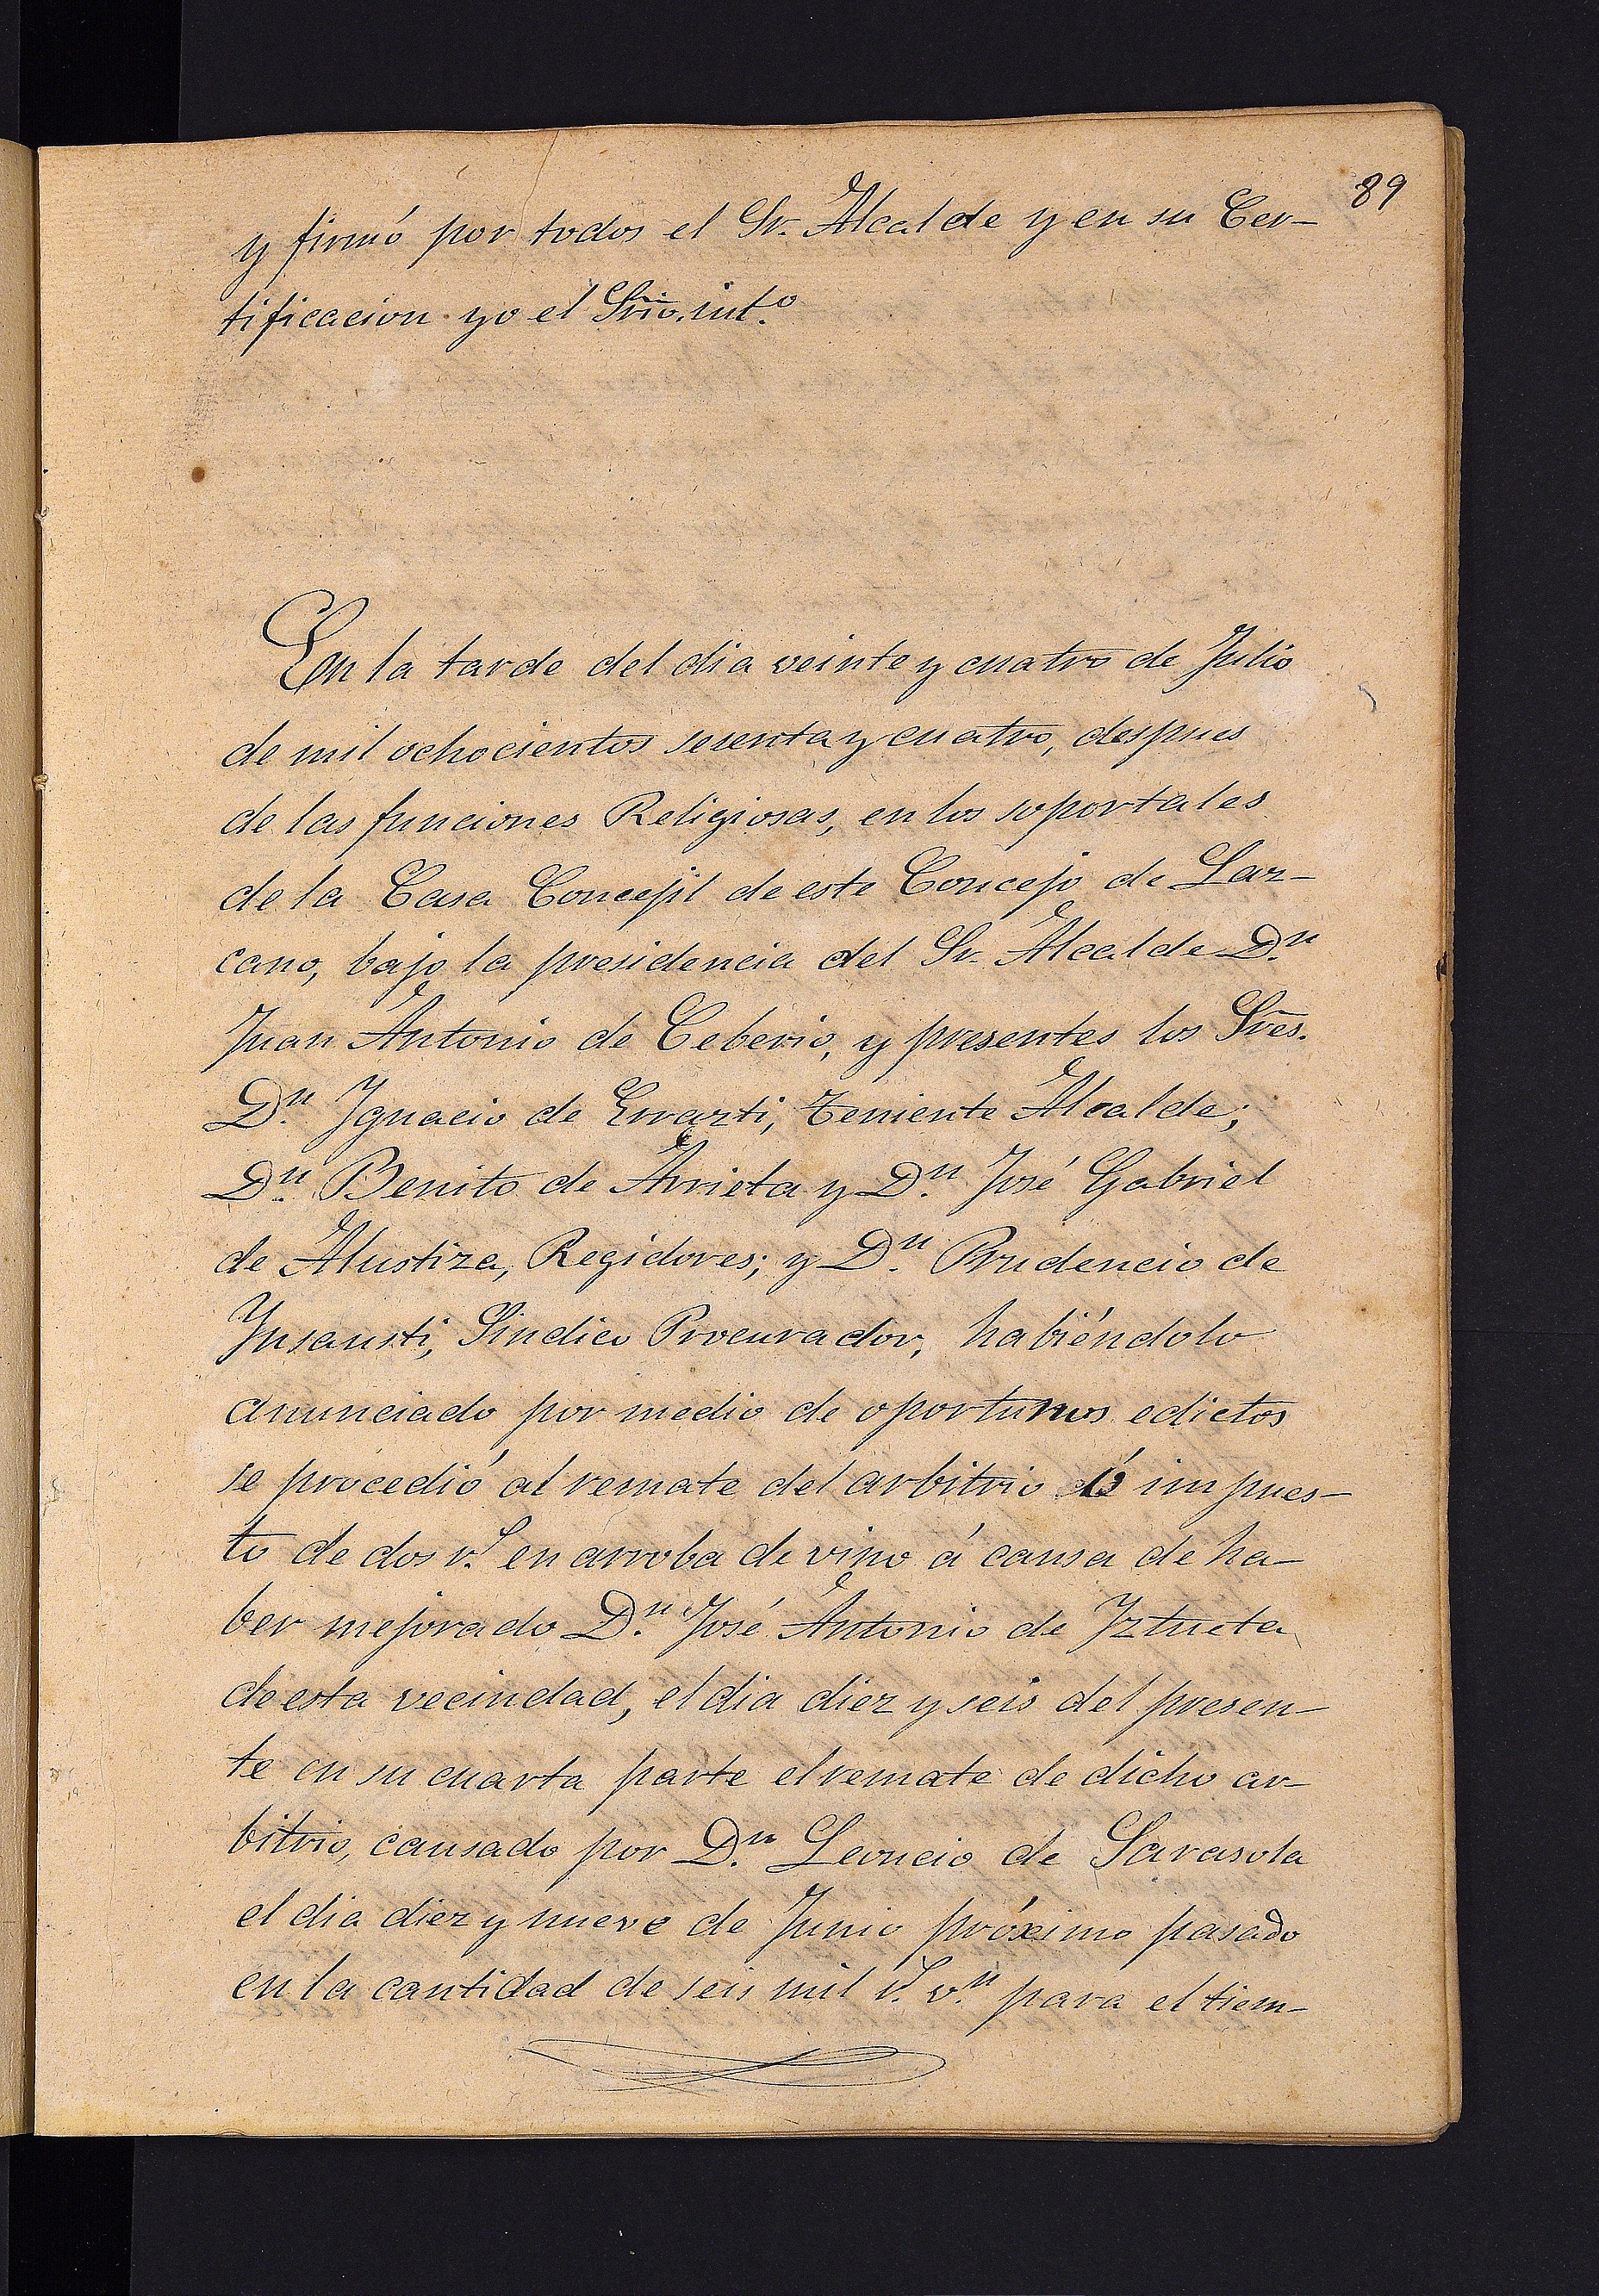 89
y firmó por todos el Sr. Alcalde y en su Cer-
tificacion yo el Srio. int.o
En la tarde del dia veinte y cuatro de Julio
de mil ochocientos sesenta y cuatro, despues
de las funciones Religiosas, en los soportales
de la Casa Concejil de este Concejo de Laz-
cano, bajo la presidencia del Sr. Alcalde D.n
Juan Antonio de Ceberio, y presentes los Sres.
D.n Ygnacio de Errazti, Teniente Alcalde;
D.n Benito de Arrieta y D.n José Gabriel
de Alustiza, Regidores; y D.n Prudencio de
Ynsausti, Sindico Procurador, habiéndolo
anunciado por medio de oportunos edictos
se procedió al remate del arbitrio ó impues-
to de dos r.s en arroba de vino á causa de ha-
ber mejorado D.n José Antonio de Yztueta
de esta vecindad, el dia diez y seis del presen-
te en su cuarta parte el remate de dicho ar-
bitrio, causado por D.n Leoncio de Sarasola
el dia diez y nueve de Junio próximo pasado
en la cantidad de seis mil r.s v.n para el tiem-